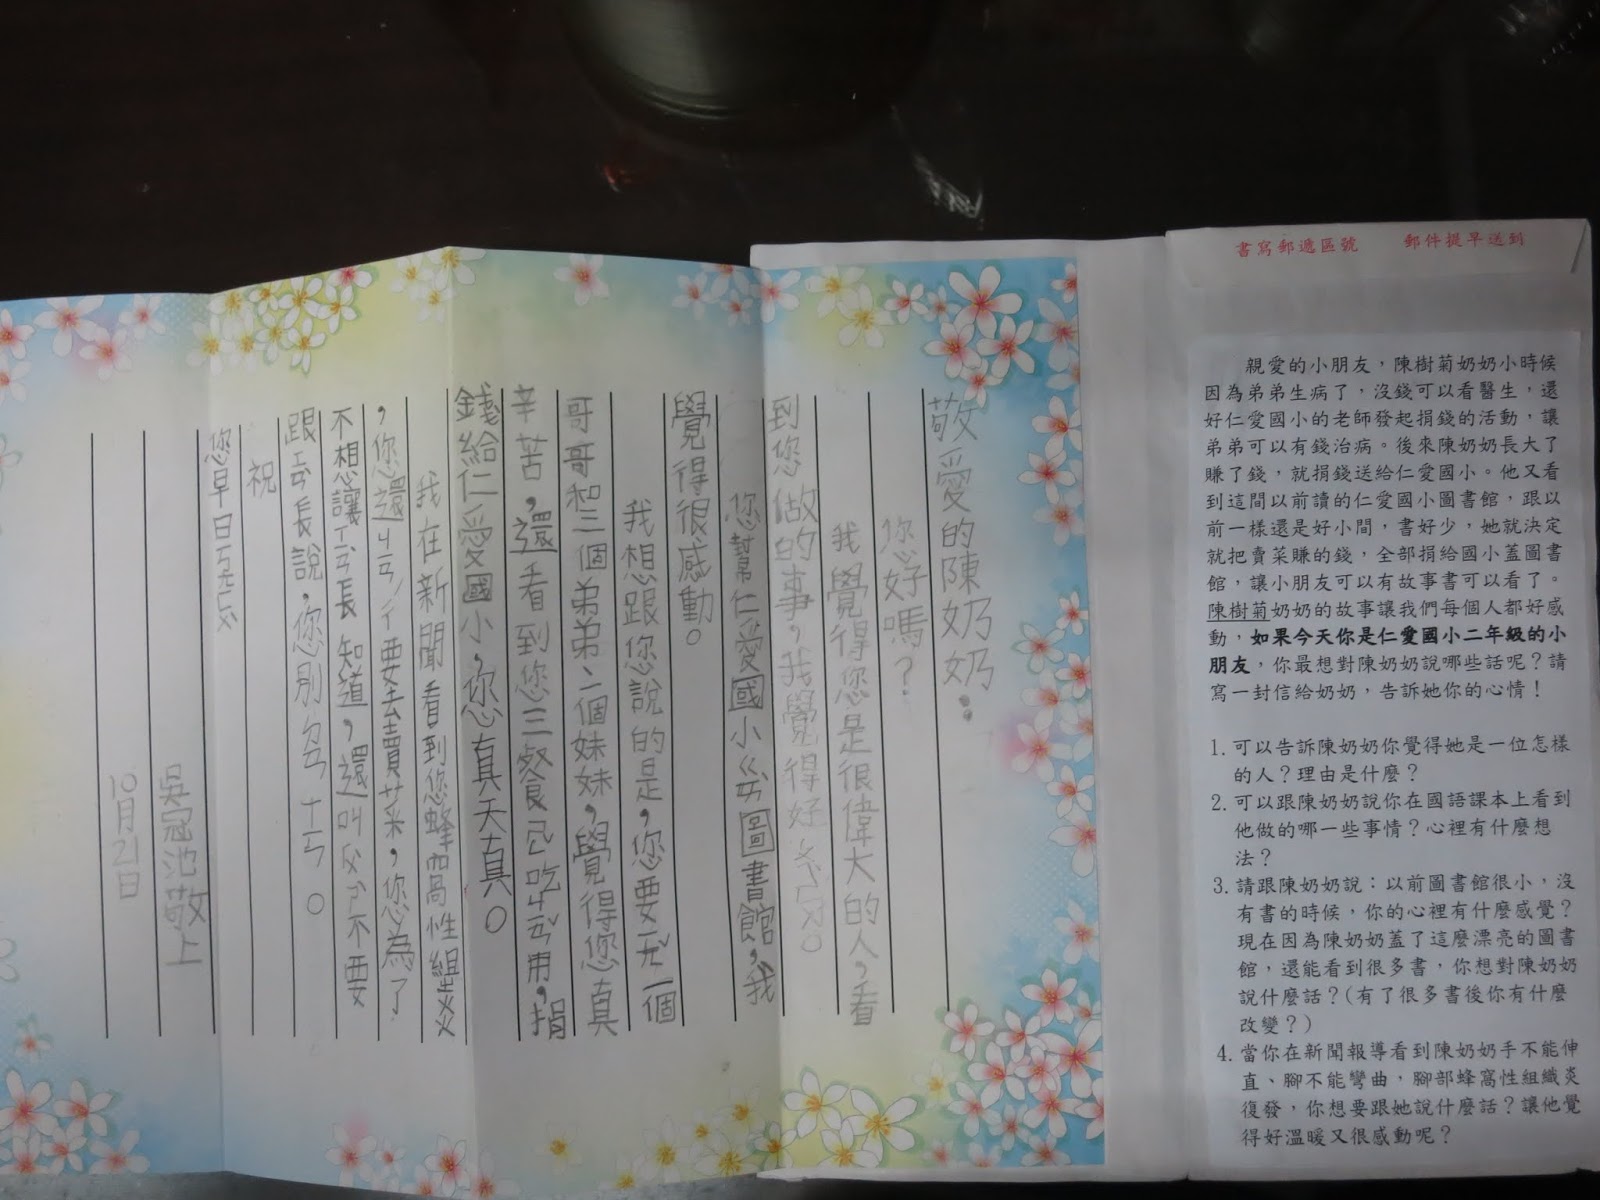 書寫郵遞區號 郵件提早送到
親愛的小朋友，陳樹菊奶奶小時候
因為弟弟生病了，沒錢可以看醫生，還
好仁愛國小的老師發起捐錢的活動，讓
弟弟可以有錢治病。後來陳奶奶長大了
賺了錢，就捐錢送給仁愛國小。他又看
到這間以前讀的仁愛國小圖書館，跟以
前一樣還是好小間，書好少，她就決定
就把賣菜賺的錢，全部捐給國小蓋圖書
館，讓小朋友可以有故事書可以看了。
陳樹菊奶奶的故事讓我們每個人都好感
動，如果今天你是仁愛國小二年級的小
朋友，你最想對陳奶奶說哪些話呢？請
寫一封信給奶奶，告訴她你的心情！
1. 可以告訴陳奶奶你覺得她是一位怎樣
的人？理由是什麼？
2. 可以跟陳奶奶說你在國語課本上看到
他做的哪一些事情？心裡有什麼想
法？
3. 請跟陳奶奶說：以前圖書館很小，沒
有書的時候，你的心裡有什麼感覺？
現在因為陳奶奶蓋了這麼漂亮的圖書
館，還能看到很多書，你想對陳奶奶
說什麼話？(有了很多書後你有什麼
改變？)
4. 當你在新聞報導看到陳奶奶手不能伸
直、腳不能彎曲，腳部蜂窩性組織炎
復發，你想要跟她說什麼話？讓他覺
得好溫暖又很感動呢？
敬愛的陳奶奶：
您好嗎？
我覺得您是很偉大的人，看
到您做的事，我覺得好
您幫仁愛國小ㄍㄞ圖書館，我
覺得很感動。
我想跟您說的是，您要 一個
哥哥和三個弟弟、二個妹妹，覺得您真
辛苦，還看到您三餐 吃 ，捐
錢給仁愛國小，您真天真。
我在新聞看到您蜂窩性組 炎
，您還 要去賣菜，您為了
不想讓 長知道，還叫 不要
跟 長說，您別
祝
您早日
吳冠池敬上
10月21日